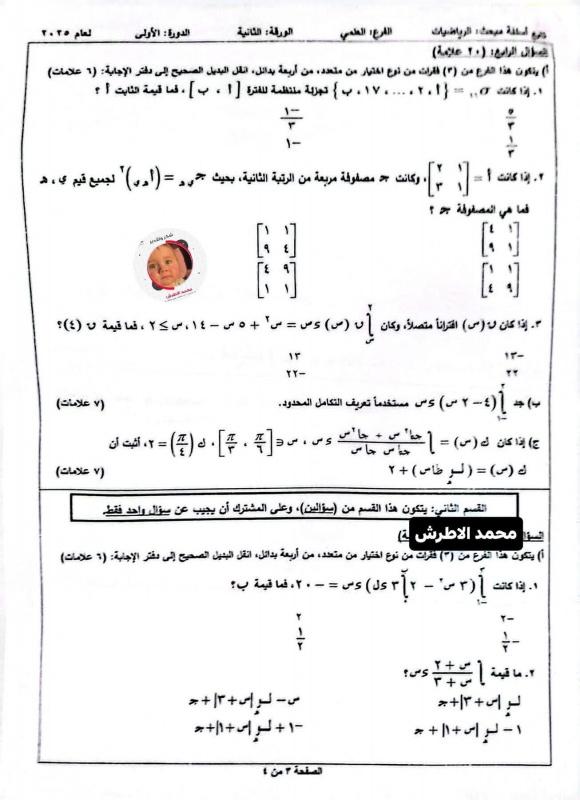 تابع أسئلة مبحث: الرياضيات الفرع: العلمي الورقة: الثانية الدورة: الأولى لعام ٢٠٢٥
السؤال الرابع: (٢٠ علامة)
أ) يتكون هذا الفرع من (٣) فقرات من نوع اختيار من متعدد، من أربعة بدائل، انقل البديل الصحيح إلى دفتر الإجابة: (٦ علامات)
١. إذا كانت σ = {أ، ٢، ...، ١٧، ب} تجزئة منتظمة للفترة [أ، ب]، فما قيمة الثابت أ ؟
٥/٣ -١/٣
١/٣ -١
٢. إذا كانت أ = [١ ٢ ; ١ ٣]، وكانت جـ مصفوفة مربعة من الرتبة الثانية، بحيث جـ ي هـ = (أ هـ ي)٢ لجميع قيم ي، هـ
فما هي المصفوفة جـ ؟
[١ ٤ ; ١ ٩] [١ ١ ; ٤ ٩]
[١ ١ ; ٩ ٤] [٩ ٤ ; ١ ١]
شكر وتقدير
محمد الاطرش
٣. إذا كان ں(س) اقتراناً متصلاً، وكان ∫ ں(س) ءس = س٢ + ٥س - ١٤، س ≥ ٢، فما قيمة ں(٤)؟
-١٣ ١٣
٢٢ -٢٢
ب) جد ∫ (٤ - ٢س) ءس مستخدماً تعريف التكامل المحدود. (٧ علامات)
ج) إذا كان ك(س) = ∫ (جتا٢س + جا٢س)/(جتاس جاس) ءس، س ∈ [π/٦، π/٣]، ك(π/٤) = ٢، أثبت أن
ك(س) = (لــو ظاس) + ٢ (٧ علامات)
القسم الثاني: يتكون هذا القسم من (سؤالين)، وعلى المشترك أن يجيب عن سؤال واحد فقط.
محمد الاطرش
أ) يتكون هذا الفرع من (٣) فقرات من نوع اختيار من متعدد، من أربعة بدائل، انقل البديل الصحيح إلى دفتر الإجابة: (٦ علامات)
١. إذا كانت ∫ (٣س٢ - ٢∫٣ءل) ءس = -٢٠، فما قيمة ب؟
-٢ ٢
-١/٢ ١/٢
٢. ما قيمة ∫ (س + ٢)/(س + ٣) ءس
لــو |س + ٣| + جـ س - لــو |س + ٣| + جـ
١ - لــو |س + ١| + جـ -١ + لــو |س + ١| + جـ
الصفحة ٣ من ٤